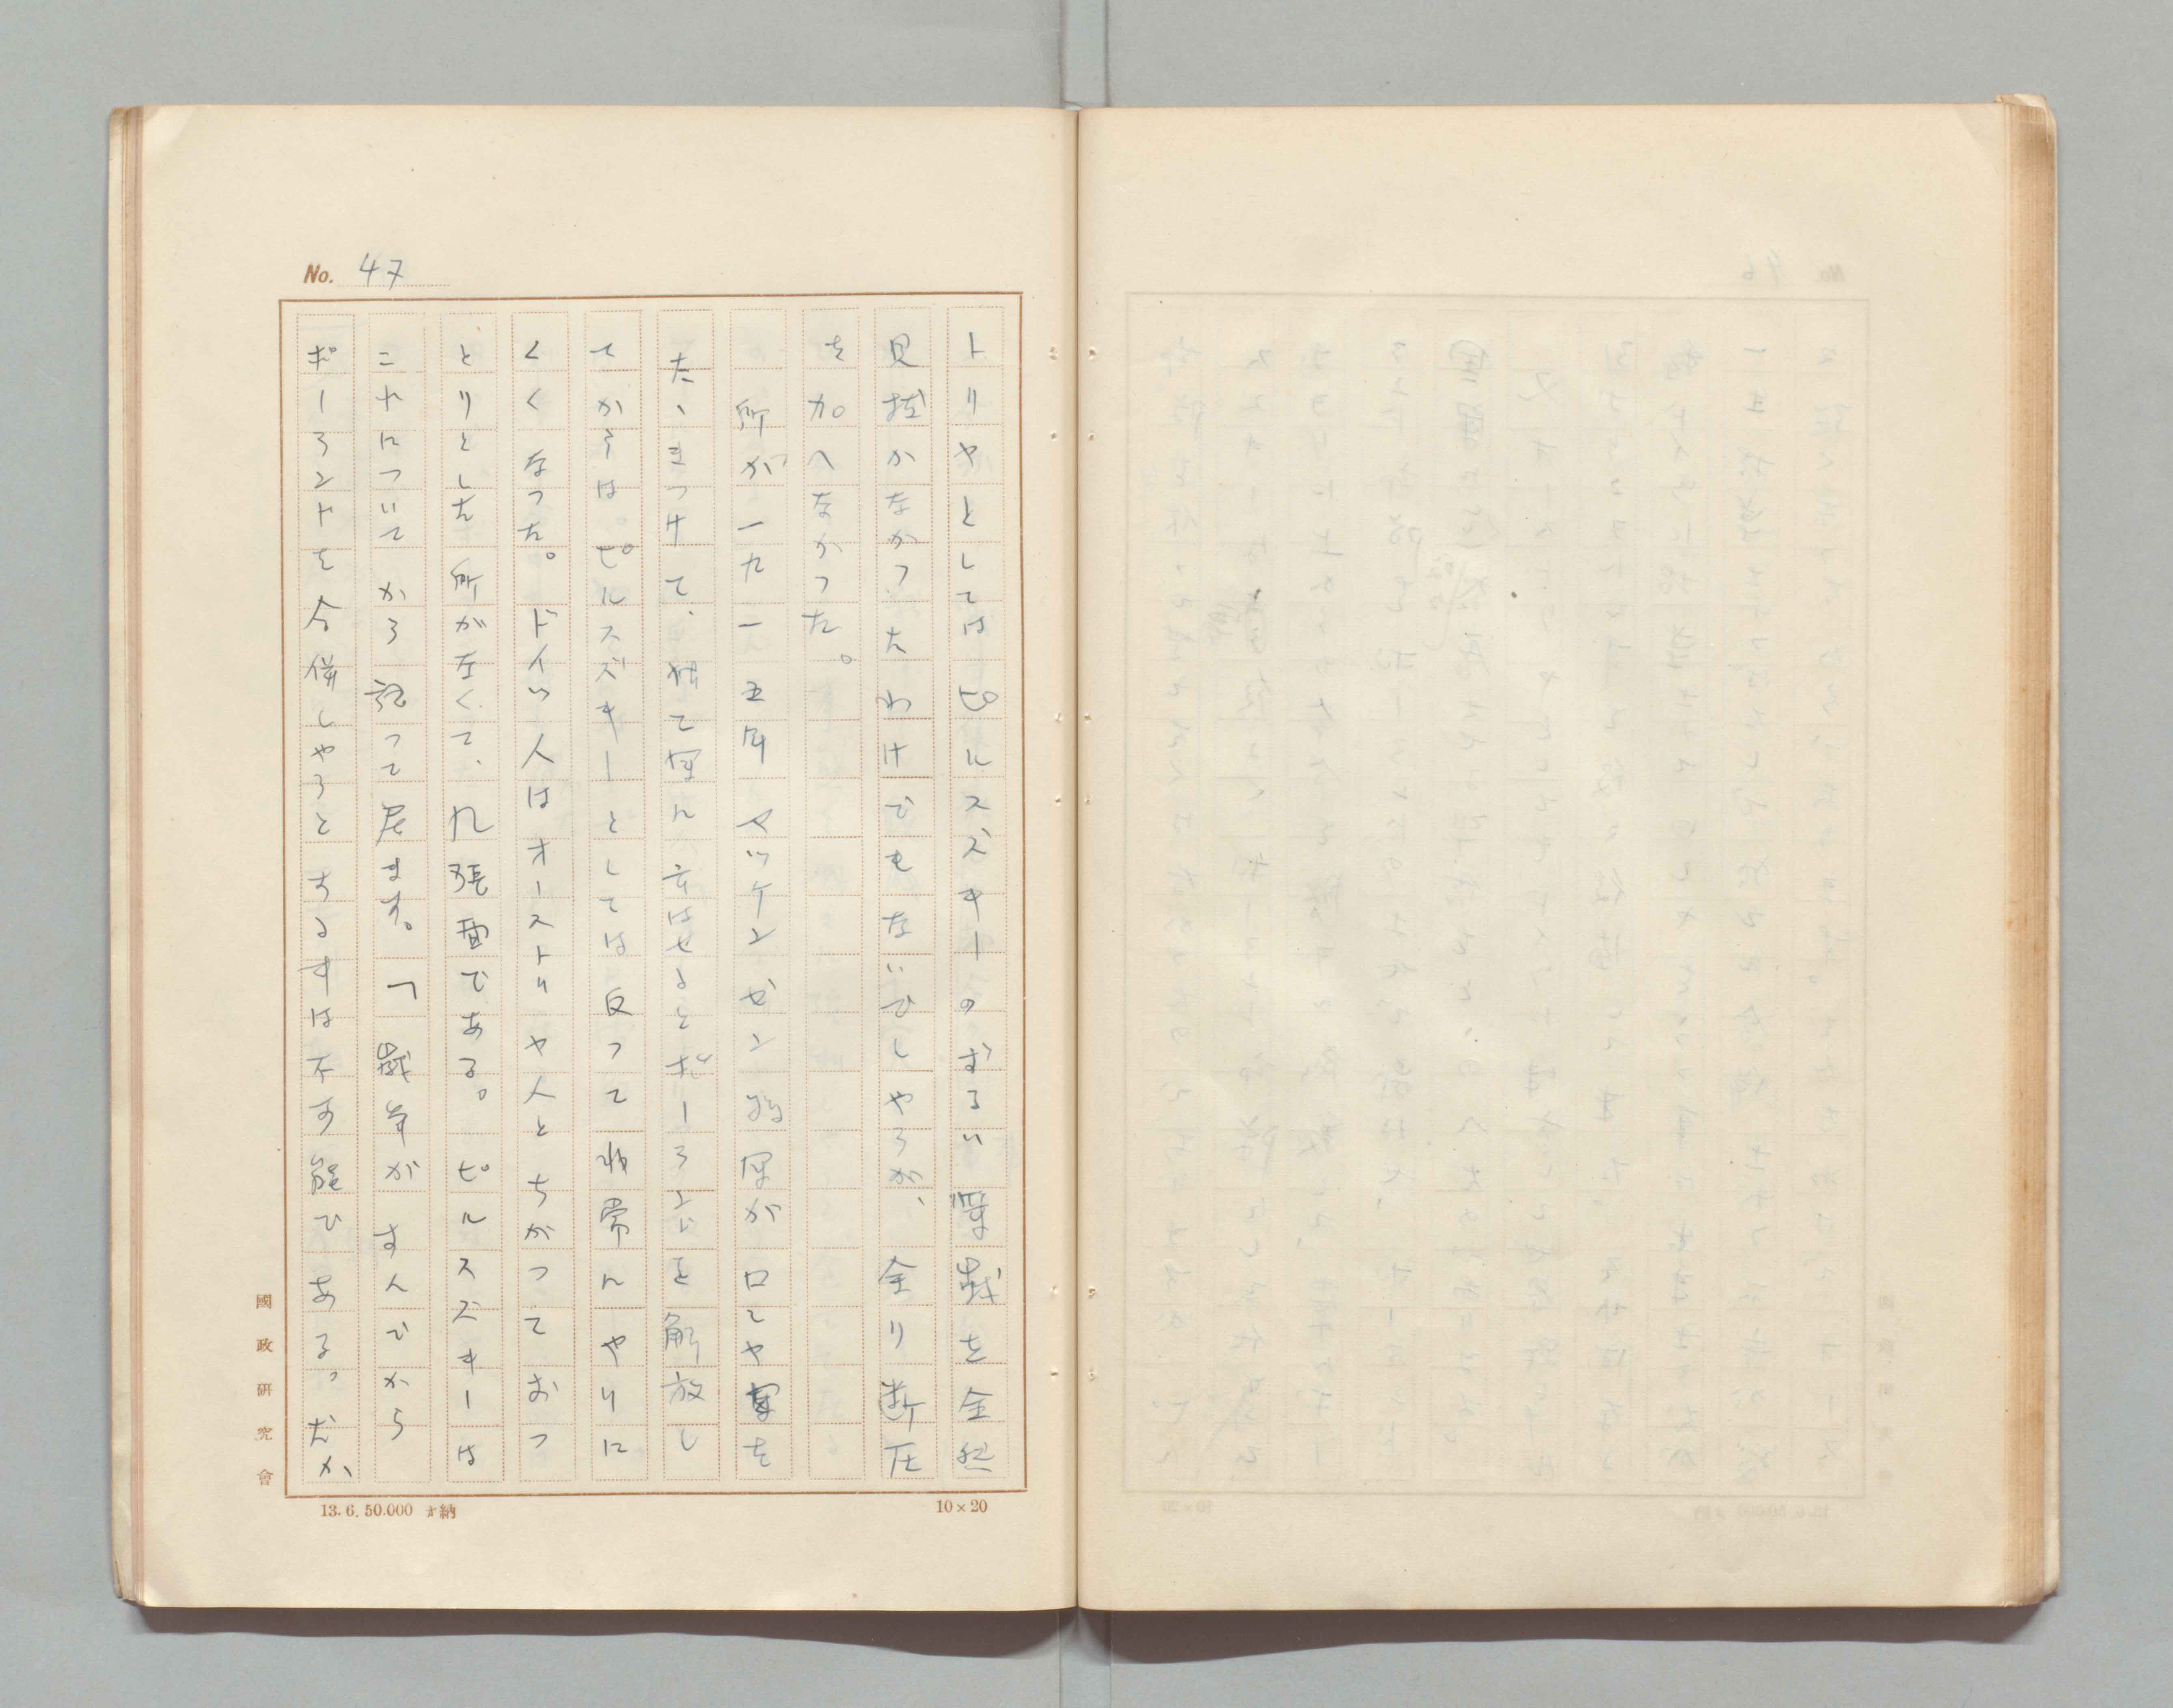 No. 47
トリヤとしてはピルスズキーのずるい軍職を全然
見抜かなかつたわけでもないでしやうが、全り断圧
を加へなかつた。
所が一九一五年マッケンゼン将軍がロシヤ軍を
たゝきつけて、
てからはピルスズキーとしては反って非常にやりに
くくなつた。ドイツ人はオーストリヤ人とちがつておつ
とりとした所がなくて、几張面である。ピルスズキーは
これについてかう記って居ます。「戦争がすんでから
ポーランドを合併しやうとする事は不可能である。だが
國政研究會
13.6.50.000 才納
10×20